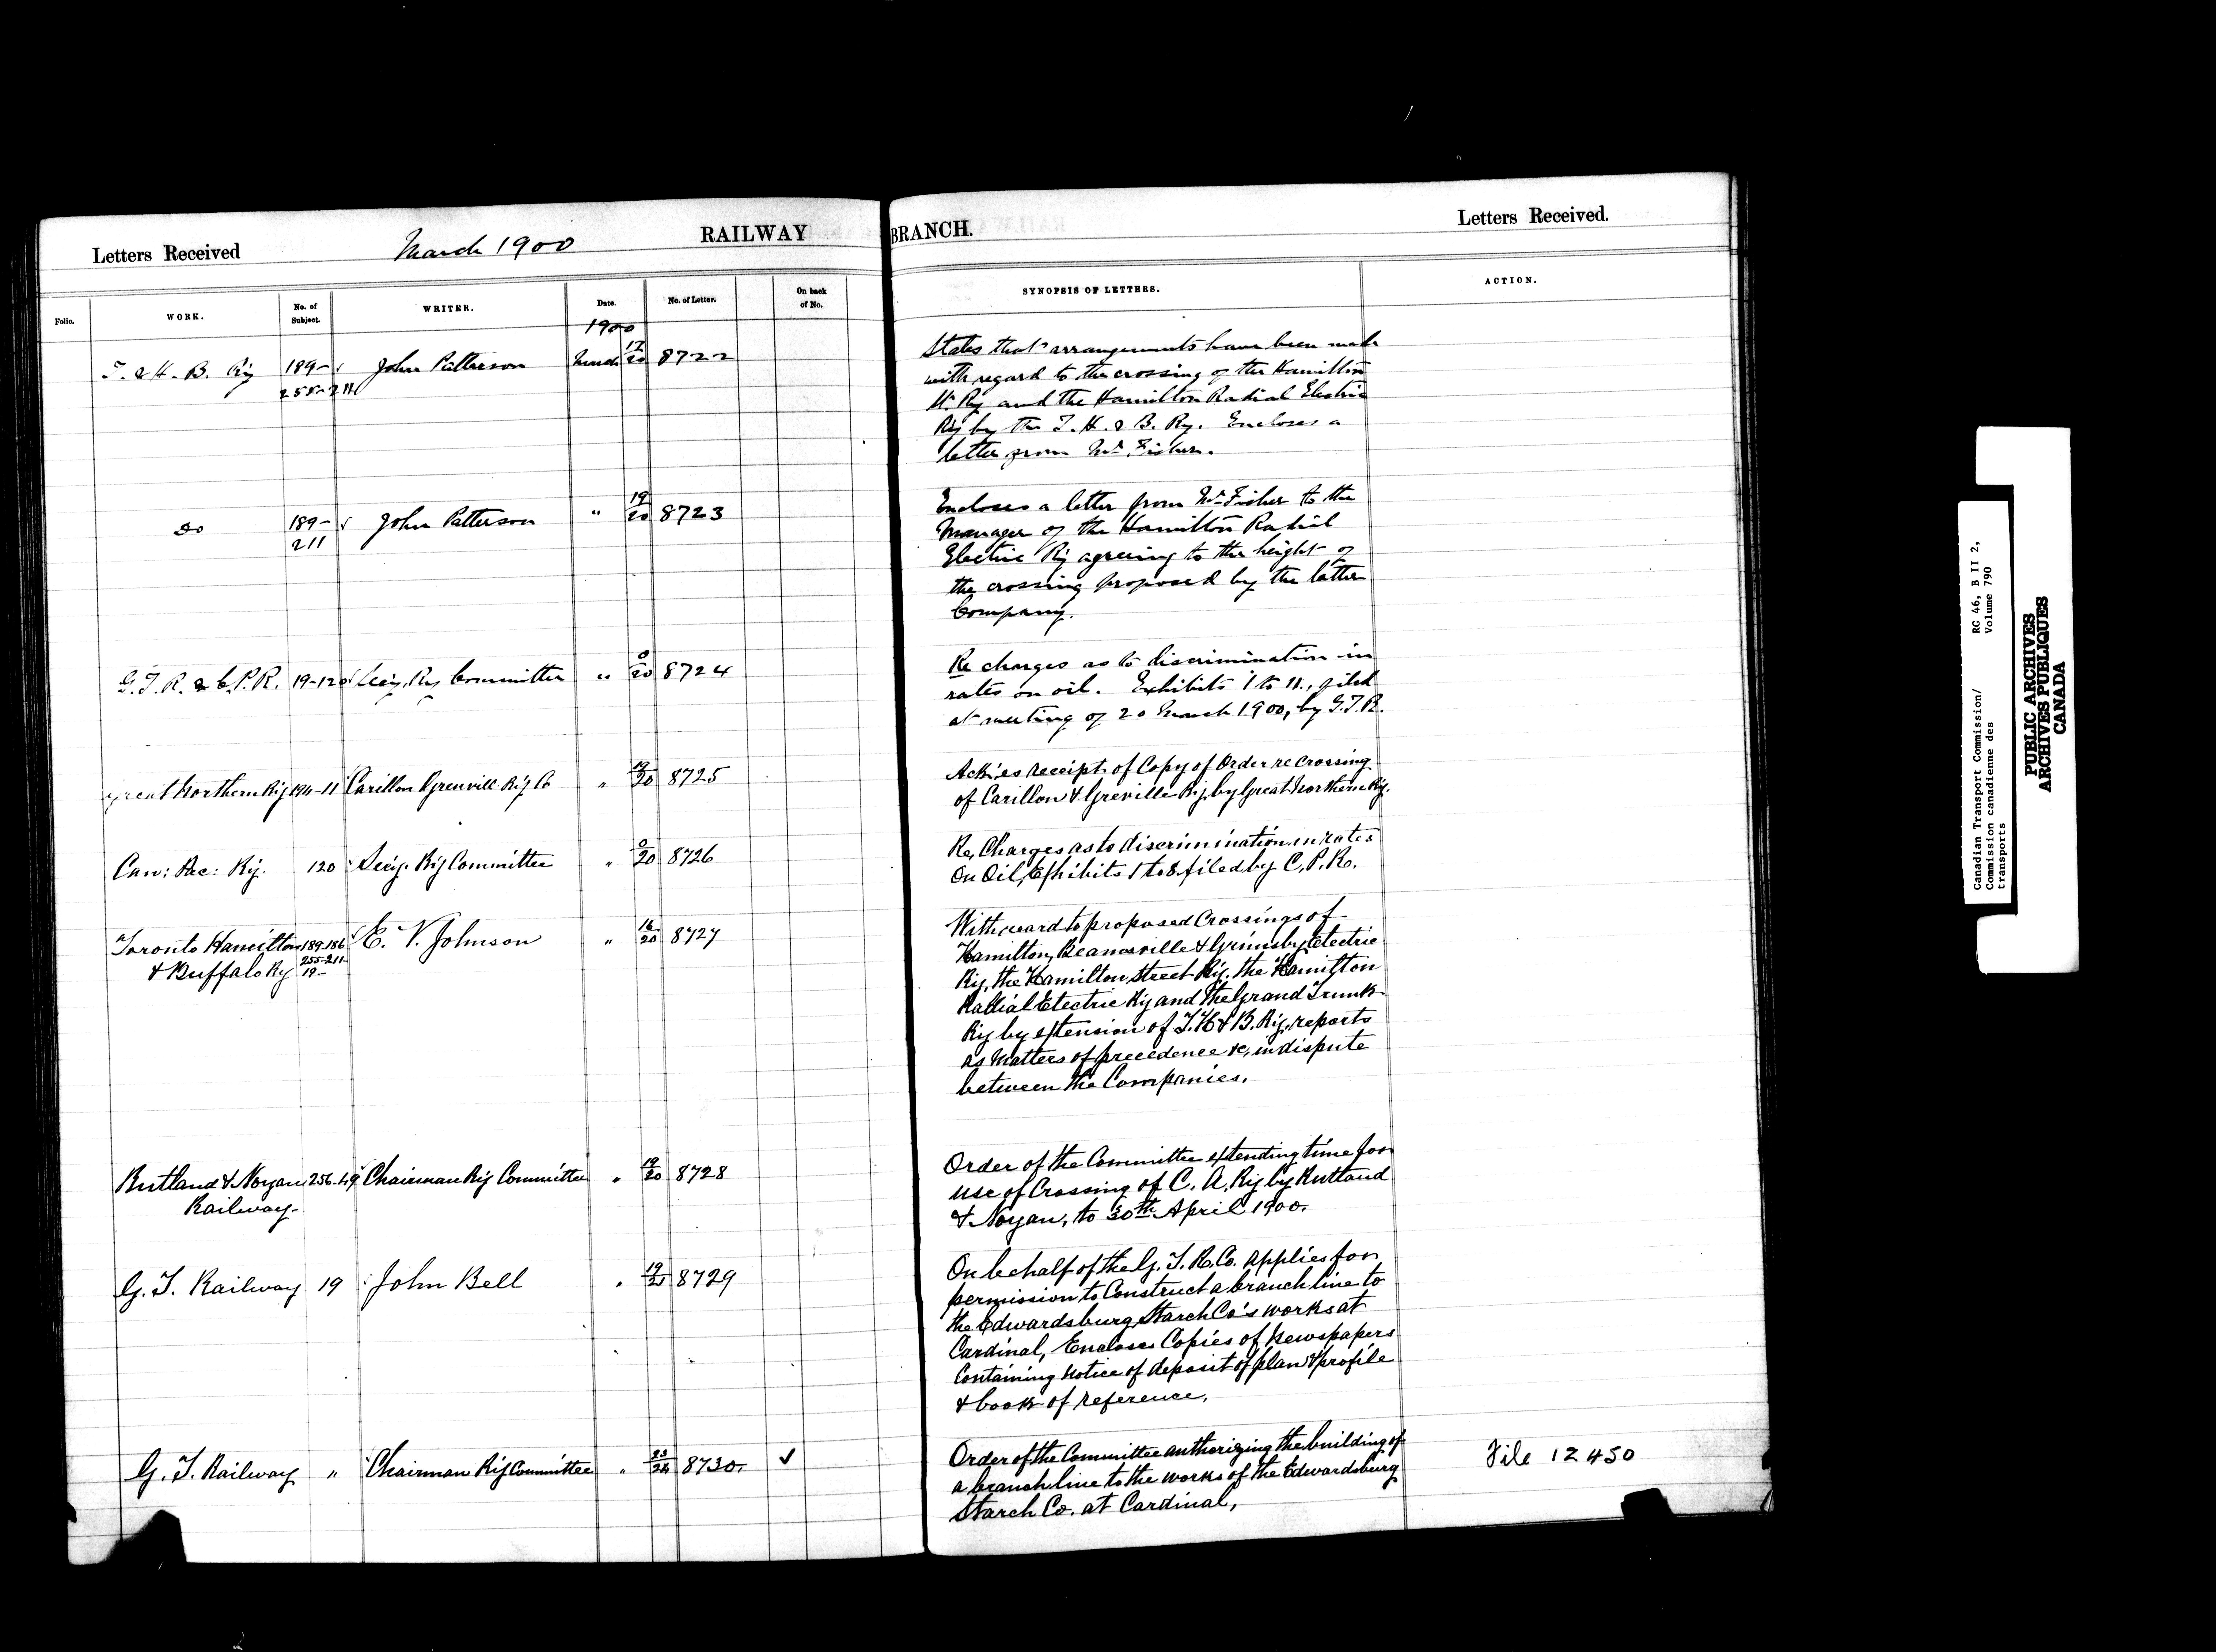 Letters Received March 1900 RAILWAY BRANCH. Letters Received.
Folio. WORK. No. of Subject. WRITER. Date. No. of Letter. On back of No. SYNOPSIS OF LETTERS. ACTION.
1900
T. & H. B. Ry 189- John Patterson March 17/20 8722
255-211
States that arrangements have been made
with regard to the crossing of the Hamilton
St. Ry and the Hamilton Radial Electric
Ry by the T. H. & B. Ry. Encloses a
letter from Mr. Fisher.
do 189- John Patterson " 19/20 8723
211
Encloses a letter from Mr. Fisher to the
Manager of the Hamilton Radial
Electric Ry agreeing to the height of
the crossing proposed by the latter
Company.
G. T. R. & C. P. R. 19-120 Secy. Ry Committee " 0/20 8724
Re charges as to discrimination in
rates on oil. Exhibits 1 to 11, filed
at meeting of 20 March 1900, by G. T. R.
Great Northern Ry 194-11 Carillon Grenville Ry Co " 19/20 8725
Ack'es receipt of Copy of Order re Crossing
of Carillon & Greville Ry. by Great Northern Ry.
Can: Pac: Ry. 120 Secy. Ry Committee " 0/20 8726
Re, Charges as to discrimination in rates
On Oil, Exhibits 1 to 8 filed by C. P. R.
Toronto Hamilton 189-186 E. V. Johnson " 16/20 8727
& Buffalo Ry 255-211-
19-
With reard to proposed Crossings of
Hamilton, Beamsville & Grimsby Electric
Ry, the Hamilton Street Ry. the Hamilton
Radial Electric Ry and The Grand Trunk
Ry by extension of T. H & B. Ry. reports
as Matters of precedence &c, in dispute
between the Companies.
Rutland & Noyan 256-49 Chairman Ry Committee " 19/20 8728
Railway-
Order of the Committee extending time for
use of Crossing of C. A. Ry by Rutland
& Noyan, to 30th April 1900.
G. T. Railway 19 John Bell " 19/21 8729
On behalf of the G. T. R. Co. applies for
permission to Construct a branch line to
the Edwardsburg Starch Co's works at
Cardinal, Encloses Copies of Newspapers
Containing Notice of deposit of plan & profile
& book of reference.
G. T. Railway " Chairman Ry Committee " 8730. ✓
Order of the Committee authorizing the building of
a branch line to the works of the Edwardsburg
Starch Co. at Cardinal,
File 12450
Canadian Transport Commission/ RG 46, B II 2,
Commission canadienne des Volume 790
transports
PUBLIC ARCHIVES
ARCHIVES PUBLIQUES
CANADA